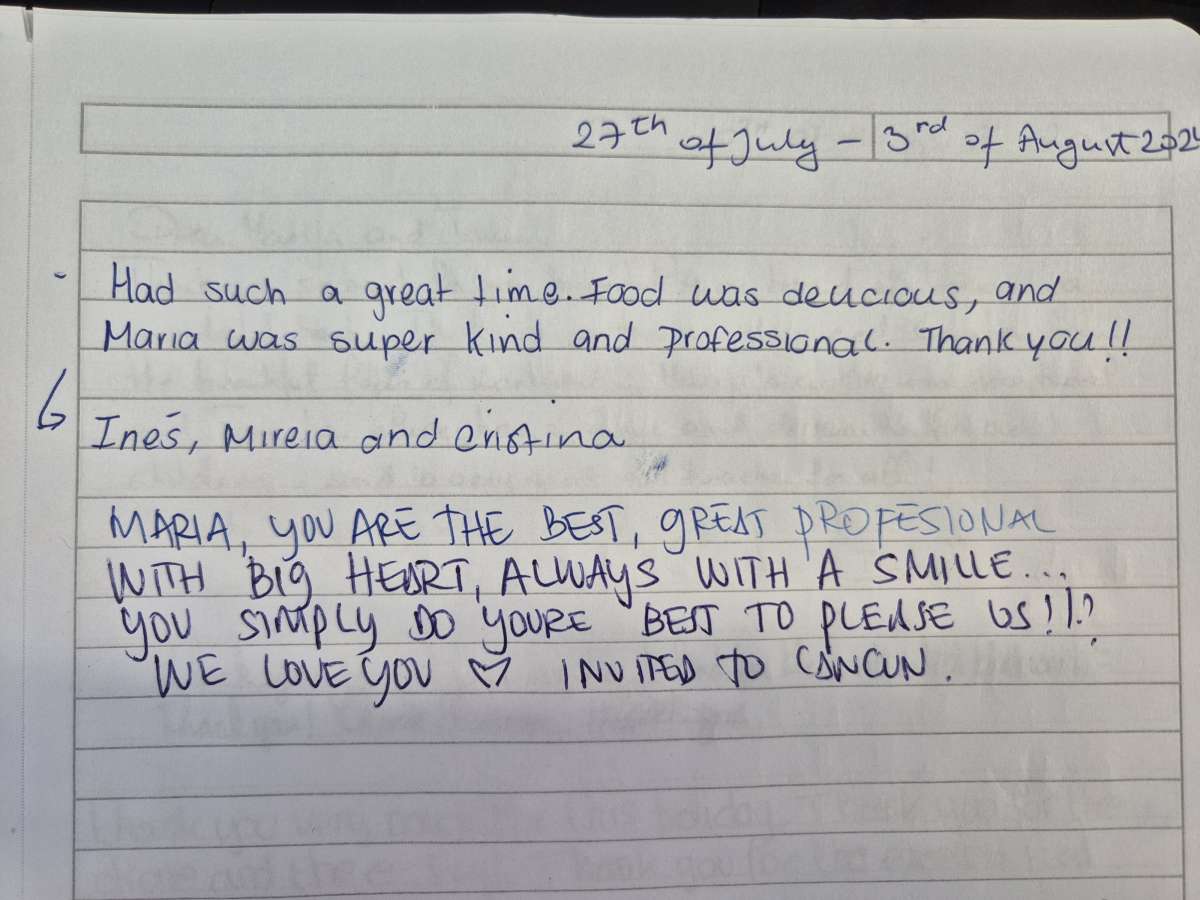 27th of July - 3rd of August 202
- Had such a great time. Food was deucious, and
Maria was super kind and professional. Thank you!!
Inés, Mireia and Cristina
MARIA, YOU ARE THE BEST, GREAT PROFESIONAL
WITH BIG HEART, ALWAYS WITH A SMILLE...
YOU SIMPLY DO YOURE BEST TO PLEASE US!!?
WE LOVE YOU ♡ INVITED TO CANCUN.